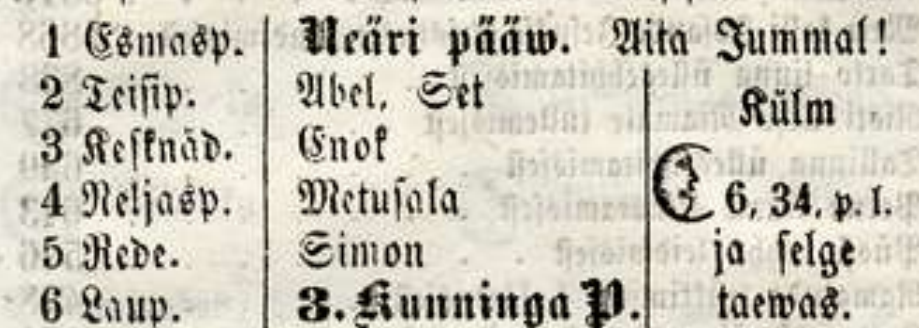 1 Esmasp. Neäri pääw. Aita Jummal!
2 Teisip. Abel. Set Külm
3 Kesknäd. Enok
4 Neljasp. Metusala 6, 34. p. l.
5 Rede. Simon ja selge
6 Laup. 3. Kunninga P. taewas.